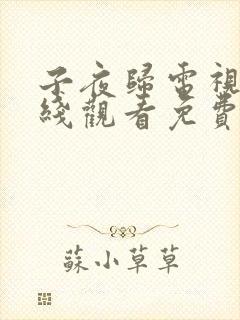 子夜歸電視
綫觀看免費
蘇小草草